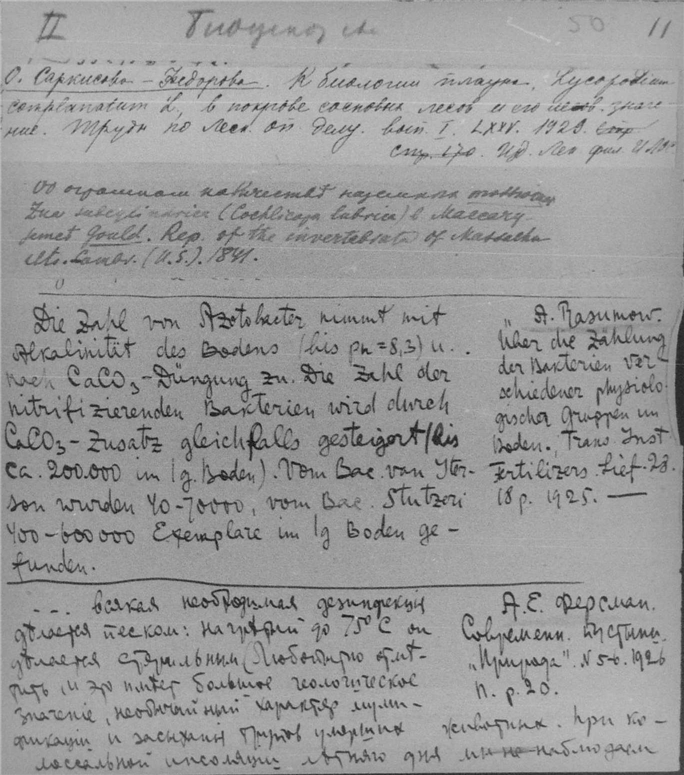 II Биоценоз 50 11
О. Саркисова-Федорова. К биологии плауна, Lycopodium
complanatum L, в покрове сосновых лесов и его значе
ние. Труды по Лесн. оп. делу. вып. I. LXXV. 1920.
стр. 170. Изд. Лен. фил.
Об огромном количестве наземных
Zua subcylindrica (Cochlicopa lubrica) в
Gould. Rep. of the invertebrata of Massachu
(U.S.). 1841.
Die Zahl von Azotobacter nimmt mit
Alkalinität des Bodens (bis pH = 8,3) u.
nach CaCO3-Düngung zu. Die Zahl der
nitrifizierenden Bakterien wird durch
CaCO3-Zusatz gleichfalls gesteigert (bis
ca. 200.000 im 1g. Boden). Vom Bac. van Iter-
son wurden 40-70000, vom Bac. Stutzeri
400-600000 Exemplare im 1g Boden ge-
funden.
A. Rasumow.
Über die Zählung
der Bakterien ver
schiedener physiolo-
gischer Gruppen im
Boden., Trans. Inst
Fertilizers. Lief. 28.
18 p. 1925. —
... всякая необходимая дезинфекция
дѣлается песком: нагрѣтый до 75°C он
дѣлается стерильным (Любопытно отмѣ-
тить, и это имѣет большое геологическое
значеніе, необычайный характер муми-
фикаціи и засыханія трупов умерших животных. При ко-
лоссальной инсоляціи лѣтняго дня мы не наблюдаем
А.Е. Ферсман.
Современн. пустыни.
„Природа". N 5-6. 1926
п. p. 20.